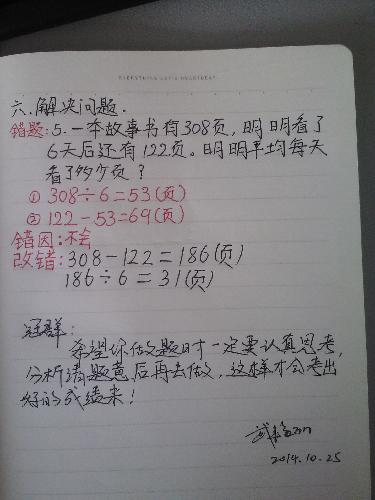 六.解决问题.
错题:5.一本故事书有308页,明明看了
6天后还有122页。明明平均每天
看了多少页?
①308÷6=53(页)
②122-53=69(页)
错因:不会
改错:308-122=186(页)
186÷6=31(页)
冠群:
希望你做题时一定要认真思考,
分析清题意后再去做,这样才会考出
好的成绩来!
2014.10.25